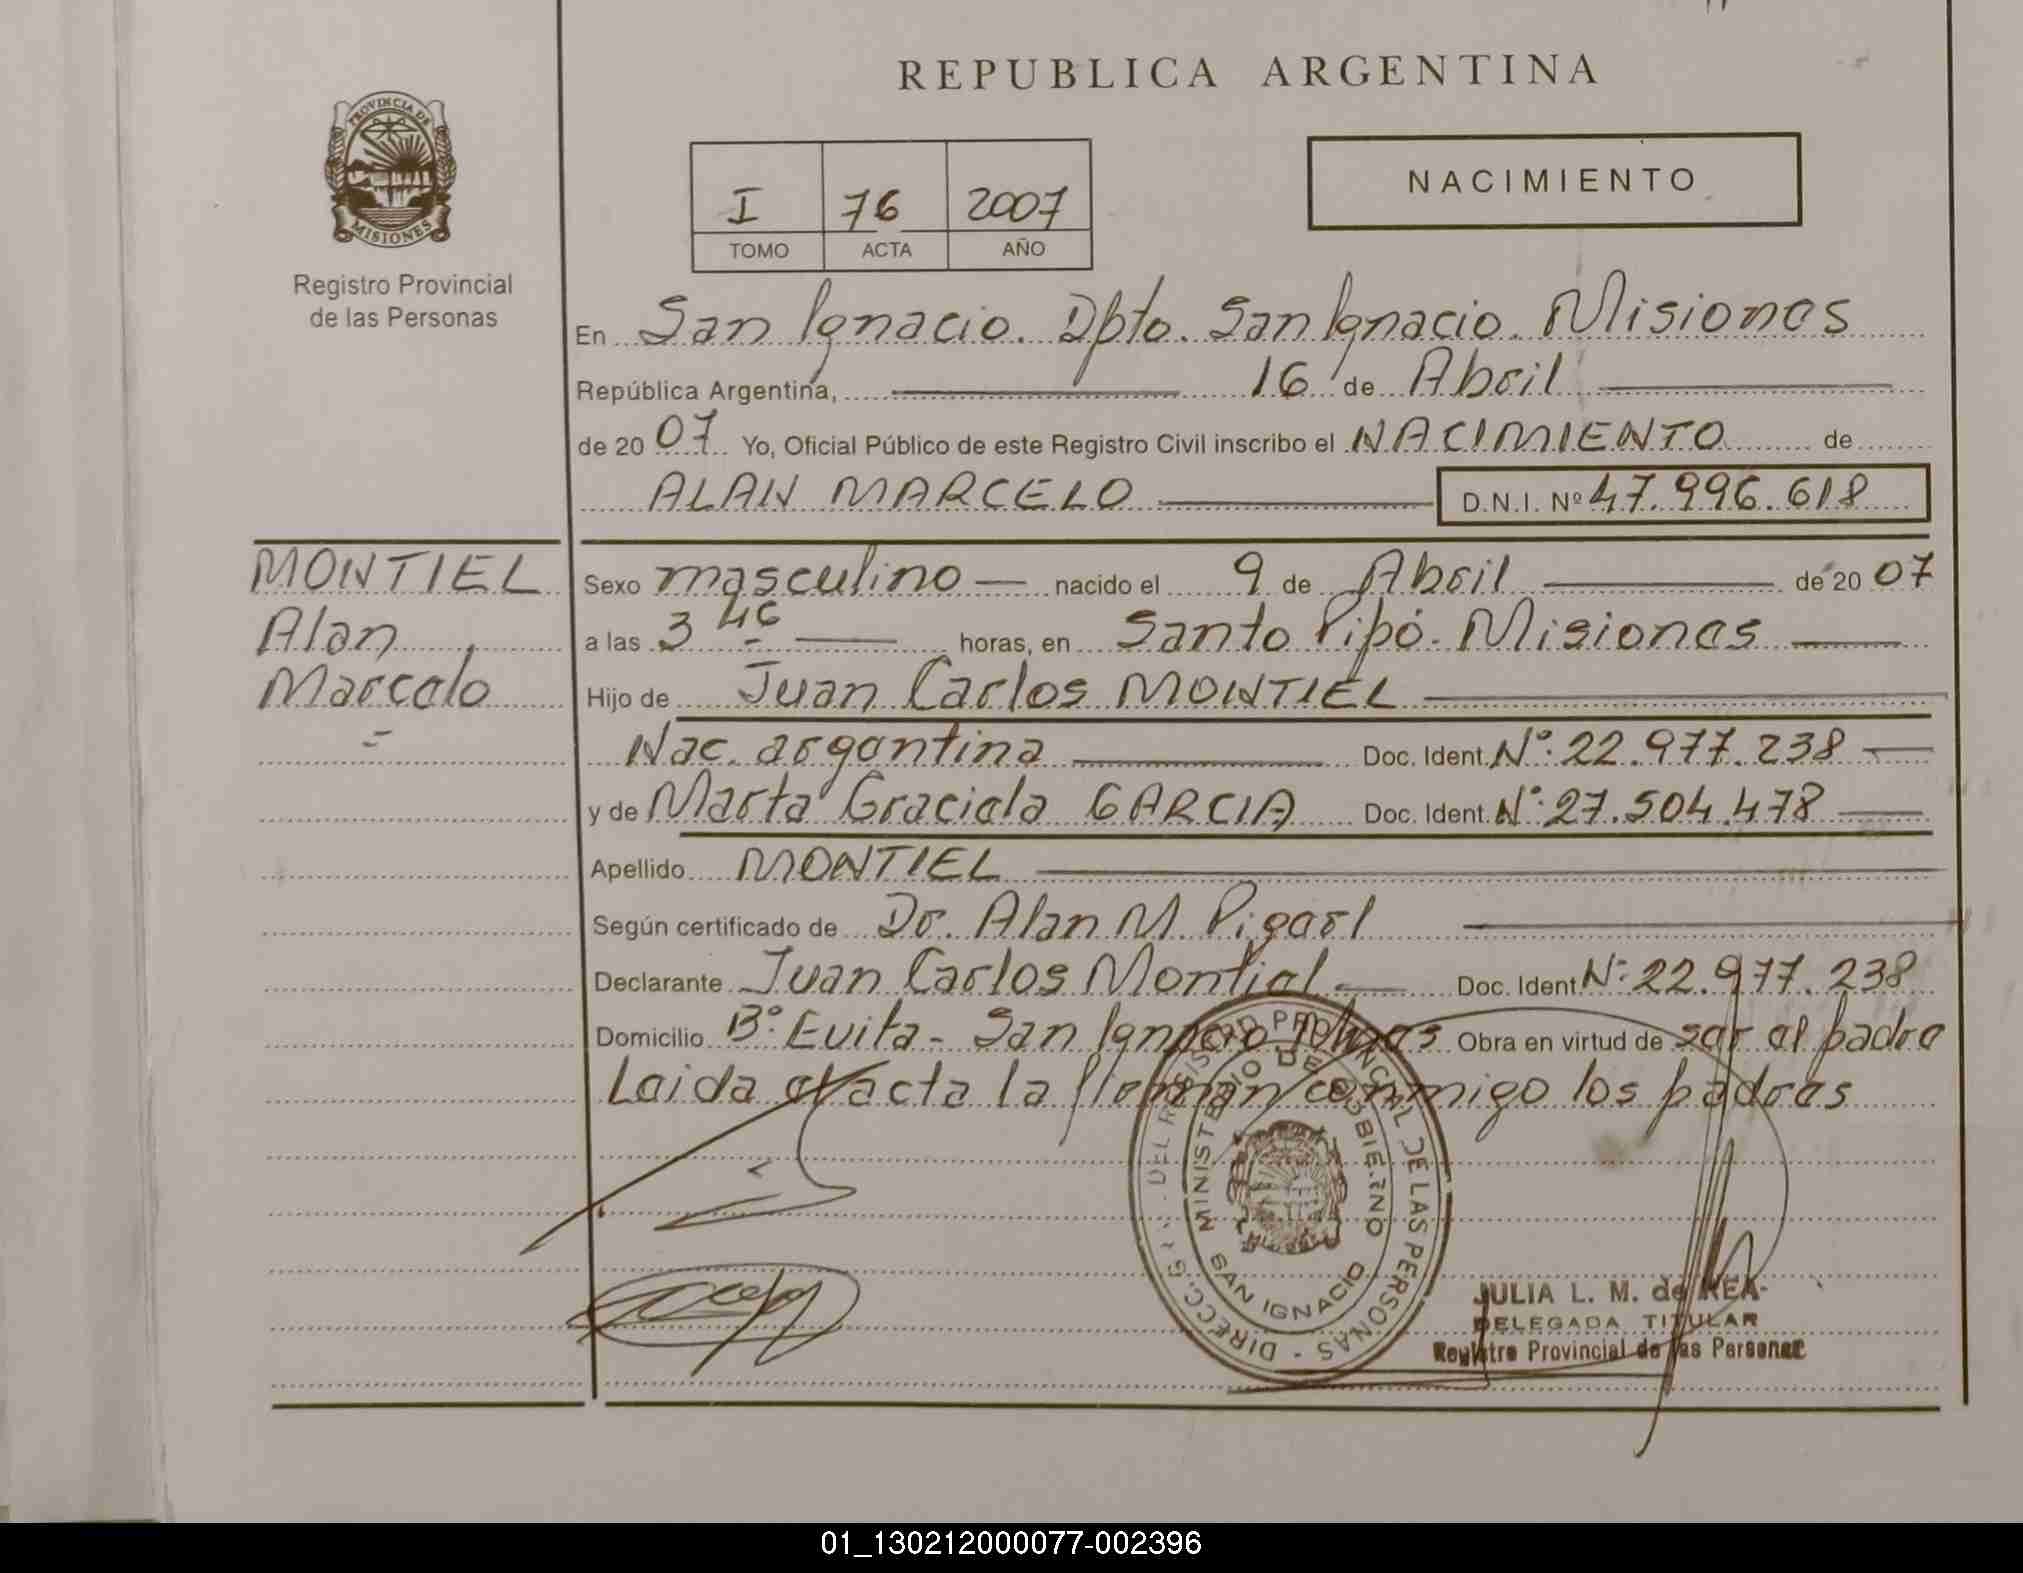 REPUBLICA ARGENTINA
PROVINCIA DE MISIONES
Registro Provincial
de las Personas
I 76 2007
TOMO ACTA AÑO
NACIMIENTO
En San Ignacio. Dpto. San Ignacio. Misiones
República Argentina, 16 de Abril
de 2007 Yo, Oficial Público de este Registro Civil inscribo el NACIMIENTO de
ALAN MARCELO D.N.I. Nº 47.996.618
MONTIEL
Alan
Marcelo
Sexo masculino nacido el 9 de Abril de 2007
a las 3 46 horas, en Santo Pipó - Misiones
Hijo de Juan Carlos MONTIEL
Nac. argentina Doc. Ident. Nº: 22.977.238
y de Marta Graciela GARCIA Doc. Ident. Nº: 27.504.478
Apellido MONTIEL
Según certificado de Dr. Alan M.
Declarante Juan Carlos Montiel Doc. Ident Nº: 22.977.238
Domicilio Bº Evita - San Ignacio Obra en virtud de ser el padre
Leida el acta la firman conmigo los padres
DIRECC. G DEL REGISTRO PROVINCIAL DE LAS PERSONAS -
MINISTERIO DE GOBIERNO
SAN IGNACIO
JULIA L. M. de REA
DELEGADA TITULAR
Registro Provincial de las Personas
01_130212000077-002396